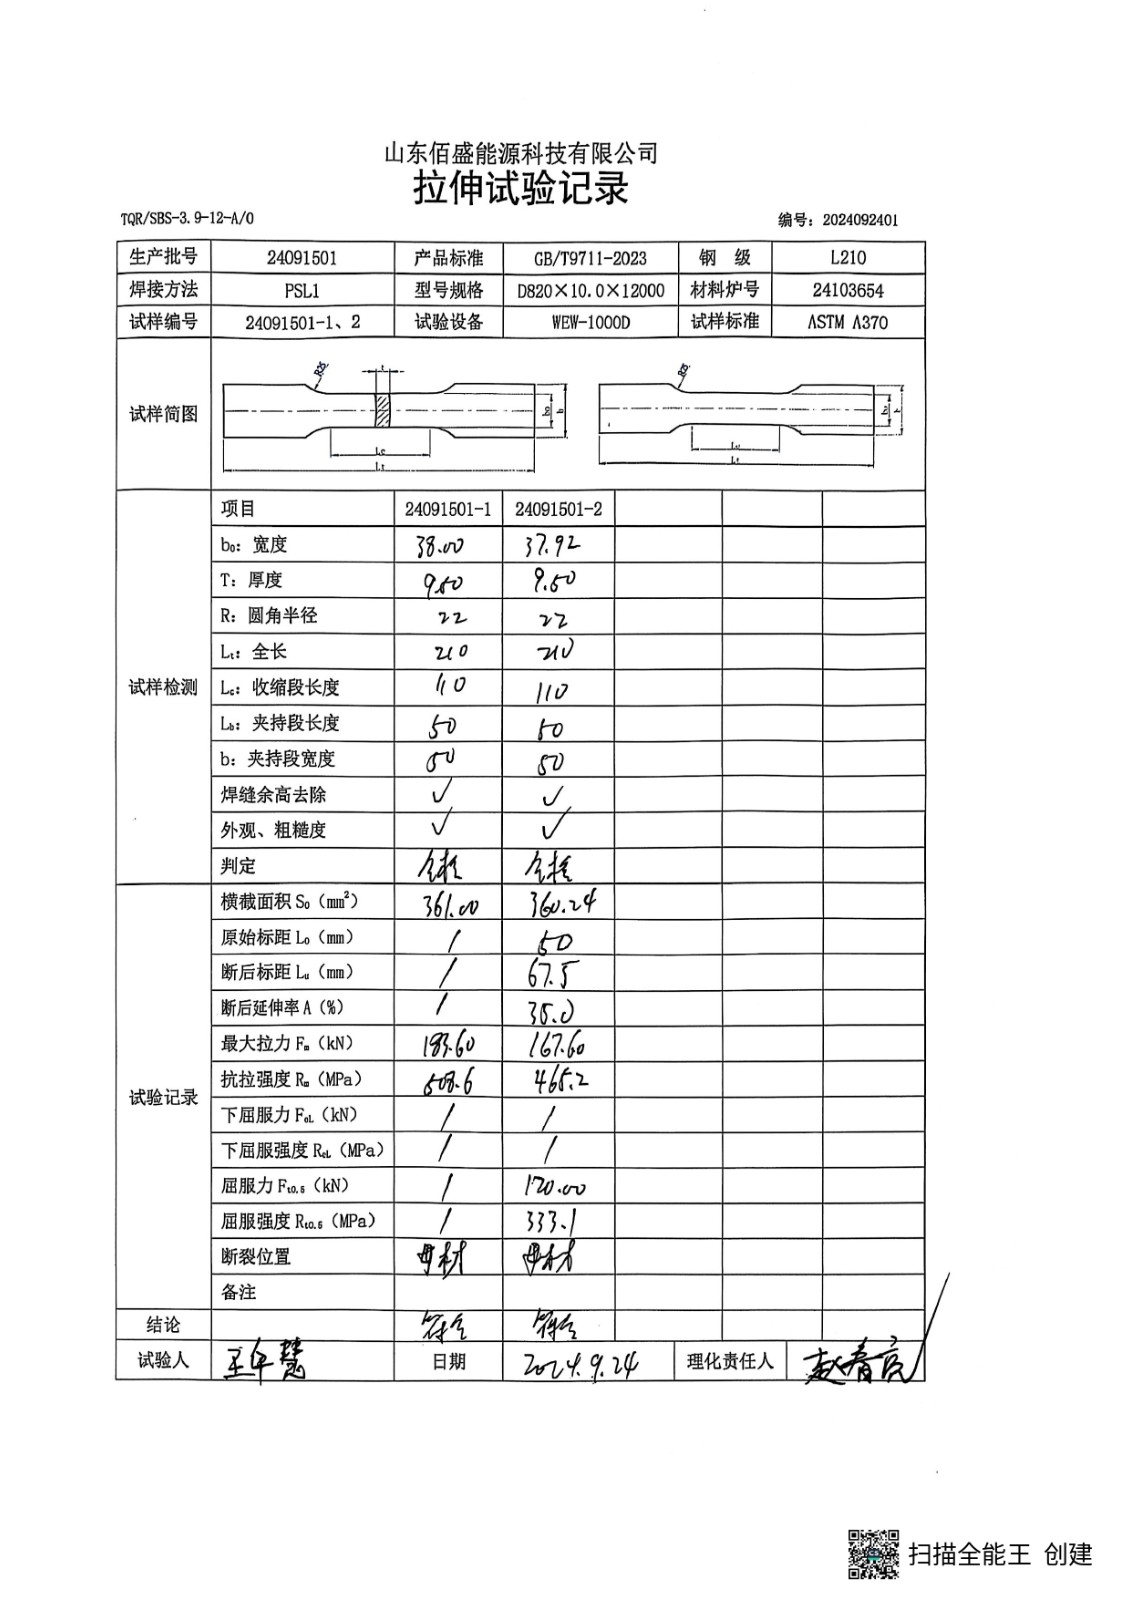 山东佰盛能源科技有限公司
拉伸试验记录
TQR/SBS-3.9-12-A/0 编号：2024092401
生产批号 24091501 产品标准 GB/T9711-2023 钢 级 L210
焊接方法 PSL1 型号规格 D820×10.0×12000 材料炉号 24103654
试样编号 24091501-1、2 试验设备 WEW-1000D 试样标准 ASTM A370
试样简图
R25 t b₀ b Lc Lt
R25 b₀ b Lc Lt
试样检测
项目 24091501-1 24091501-2
b₀：宽度 38.00 37.92
T：厚度 9.50 9.50
R：圆角半径 22 22
Lt：全长 210 210
Lc：收缩段长度 110 110
Lh：夹持段长度 50 50
b：夹持段宽度 50 50
焊缝余高去除 ✓ ✓
外观、粗糙度 ✓ ✓
判定 合格 合格
试验记录
横截面积 S₀（mm²） 361.00 360.24
原始标距 L₀（mm） / 50
断后标距 Lu（mm） / 67.5
断后延伸率 A（%） / 35.0
最大拉力 Fm（kN） 183.60 167.60
抗拉强度 Rm（MPa） 508.6 465.2
下屈服力 FeL（kN） / /
下屈服强度 ReL（MPa） / /
屈服力 Ft0.5（kN） / 120.00
屈服强度 Rt0.5（MPa） / 333.1
断裂位置 母材 母材
备注
结论 符合 符合
试验人 日期 2024.9.24 理化责任人 赵春亮
扫描全能王 创建